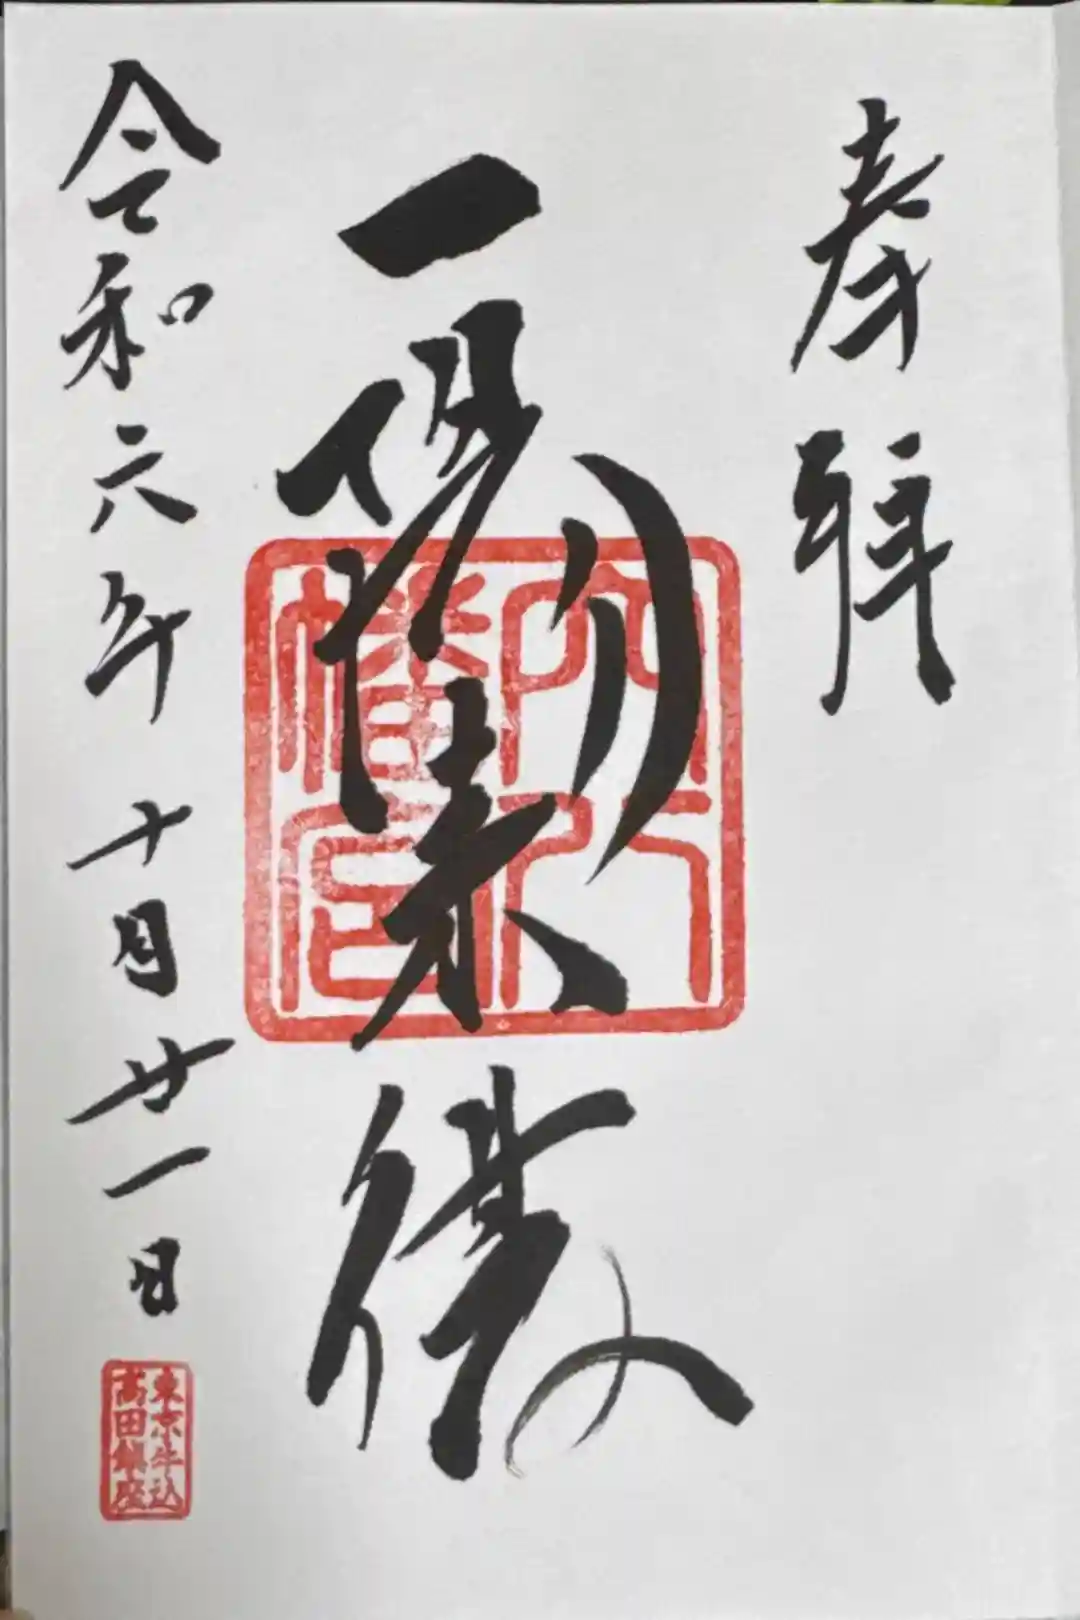 奉拝
一陽来復
穴八
幡宮
令和六年十月廿一日
東京牛込
高田鎮座